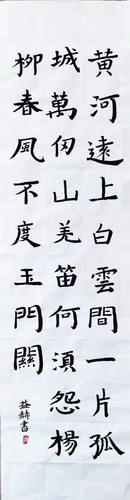 黃河遠上白雲間一片孤
城萬仞山羌笛何湏怨楊
柳春風不度玉門關
益赫書